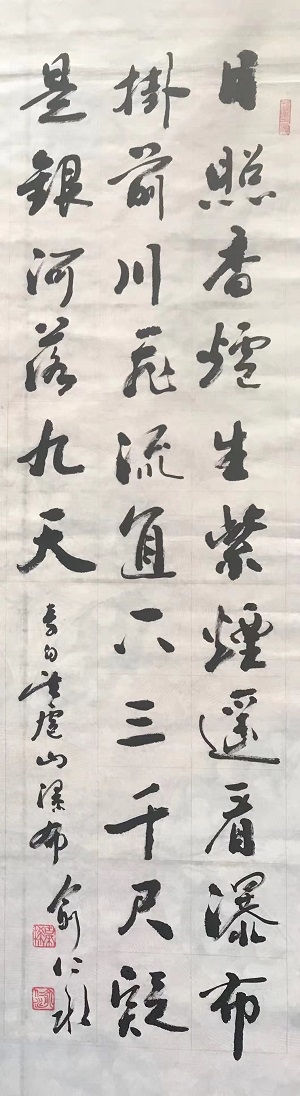 日照香爐生紫煙遥看瀑布
掛前川飛流直下三千尺疑
是銀河落九天
李白望廬山瀑布 俞仁